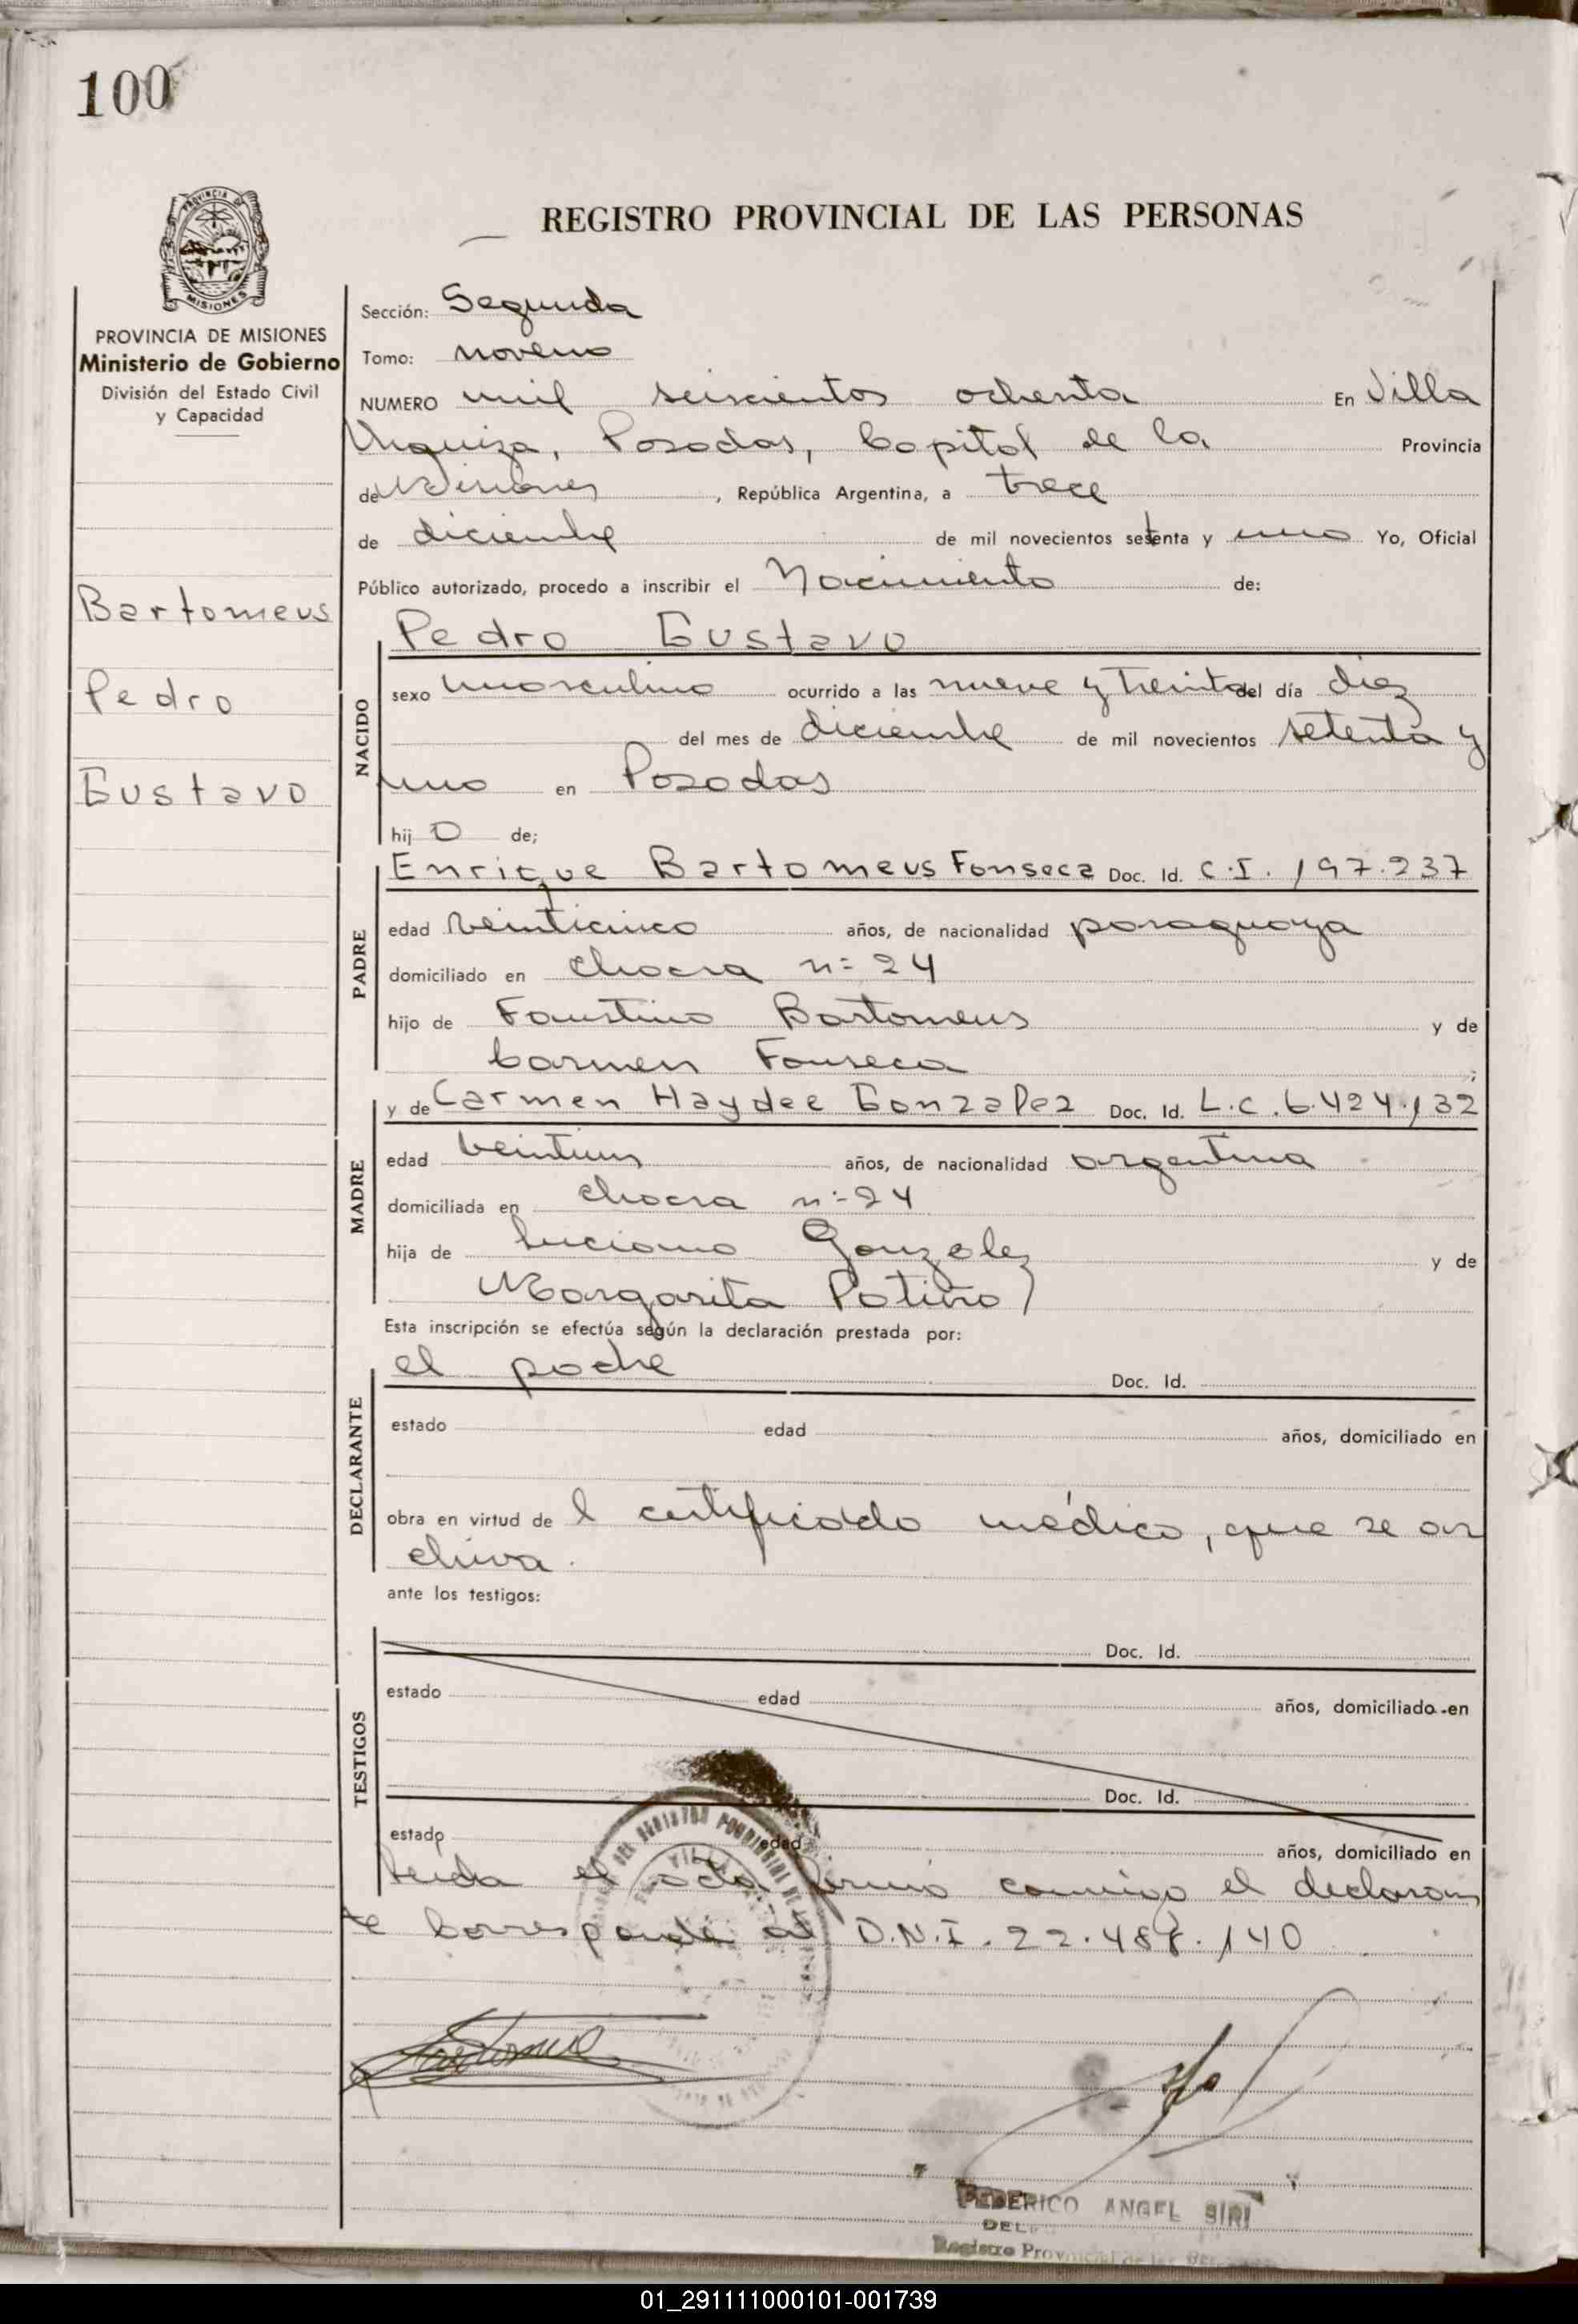 100
REGISTRO PROVINCIAL DE LAS PERSONAS
PROVINCIA DE MISIONES
Ministerio de Gobierno
División del Estado Civil
y Capacidad
Bartomeus
Pedro
Gustavo
Sección: Segunda
Tomo: noveno
NUMERO mil seiscientos ochenta En Villa
Urquiza, Posadas, Capital de la Provincia
de Misiones, República Argentina, a trece
de diciembre de mil novecientos setenta y uno Yo, Oficial
Público autorizado, procedo a inscribir el Nacimiento de:
Pedro Gustavo
NACIDO
sexo masculino ocurrido a las nueve y treinta del día diez
del mes de diciembre de mil novecientos setenta y
uno en Posadas
hij o de;
Enrique Bartomeus Fonseca Doc. Id. C.I. 197.237
PADRE
edad veinticinco años, de nacionalidad paraguaya
domiciliado en chacra n= 24
hijo de Faustino Bartomeus y de
Carmen Fonseca ;
y de Carmen Haydee Gonzalez Doc. Id. L.C. 6.424.132
MADRE
edad veintiun años, de nacionalidad argentina
domiciliada en chacra n= 24
hija de Luciano Gonzalez y de
Margarita Patiño
Esta inscripción se efectúa según la declaración prestada por:
el padre Doc. Id.
DECLARANTE
estado edad años, domiciliado en
obra en virtud de l certificado médico, que se ar
chiva.
ante los testigos:
Doc. Id.
TESTIGOS
estado edad años, domiciliado en
Doc. Id.
estado edad años, domiciliado en
Leida el acta firmó conmigo el declaran
te Corresponde al D.N.I. 22.488.140
FEDERICO ANGEL SIRI
Registro Provincial de las
01_291111000101-001739